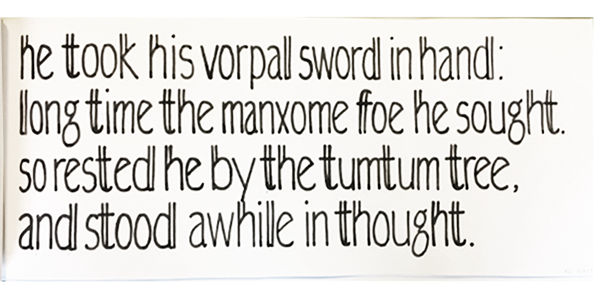 he took his vorpal sword in hand:
long time the manxome foe he sought.
so rested he by the tumtum tree,
and stood awhile in thought.